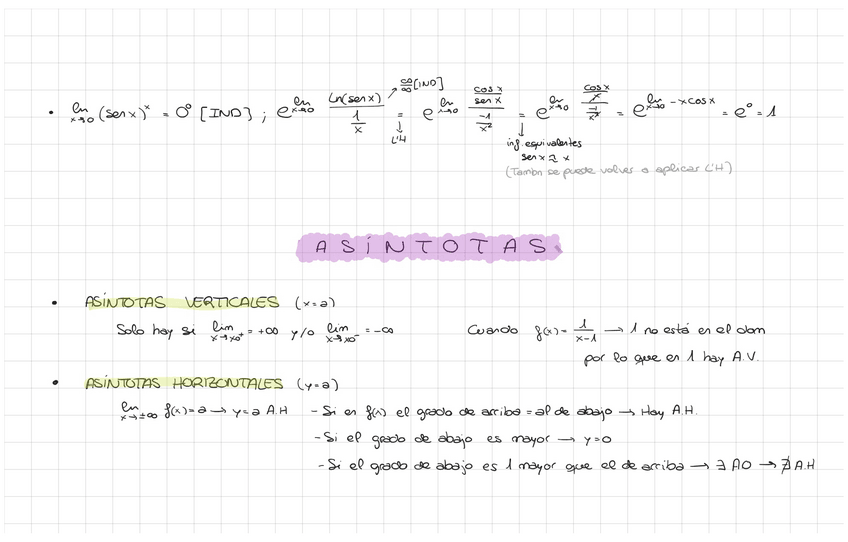 • lim x→0 (sen x)^x = 0^0 [IND] ; e^(lim x→0 Ln(sen x) / (1/x)) → ∞/∞ [IND] = e^(lim x→0 (cos x / sen x) / (-1/x²)) = e^(lim x→0 (cos x / x) / (-1/x²)) = e^(lim x→0 -x cos x) = e^0 = 1
↓ L'H
↓ inf. equivalentes
sen x ≈ x
(Tambn se puede volver a aplicar L'H)
ASÍNTOTAS
• ASÍNTOTAS VERTICALES (x=a)
Solo hay si lim x→x0⁺ = +∞ y/o lim x→x0⁻ = -∞ Cuando f(x) = 1/(x-1) → 1 no está en el dom
por lo que en 1 hay A.V.
• ASÍNTOTAS HORIZONTALES (y=a)
lim x→±∞ f(x) = a → y=a A.H - Si en f(x) el grado de arriba = al de abajo → Hay A.H.
- Si el grado de abajo es mayor → y=0
- Si el grado de abajo es 1 mayor que el de arriba → ∃ AO → ∄ A.H